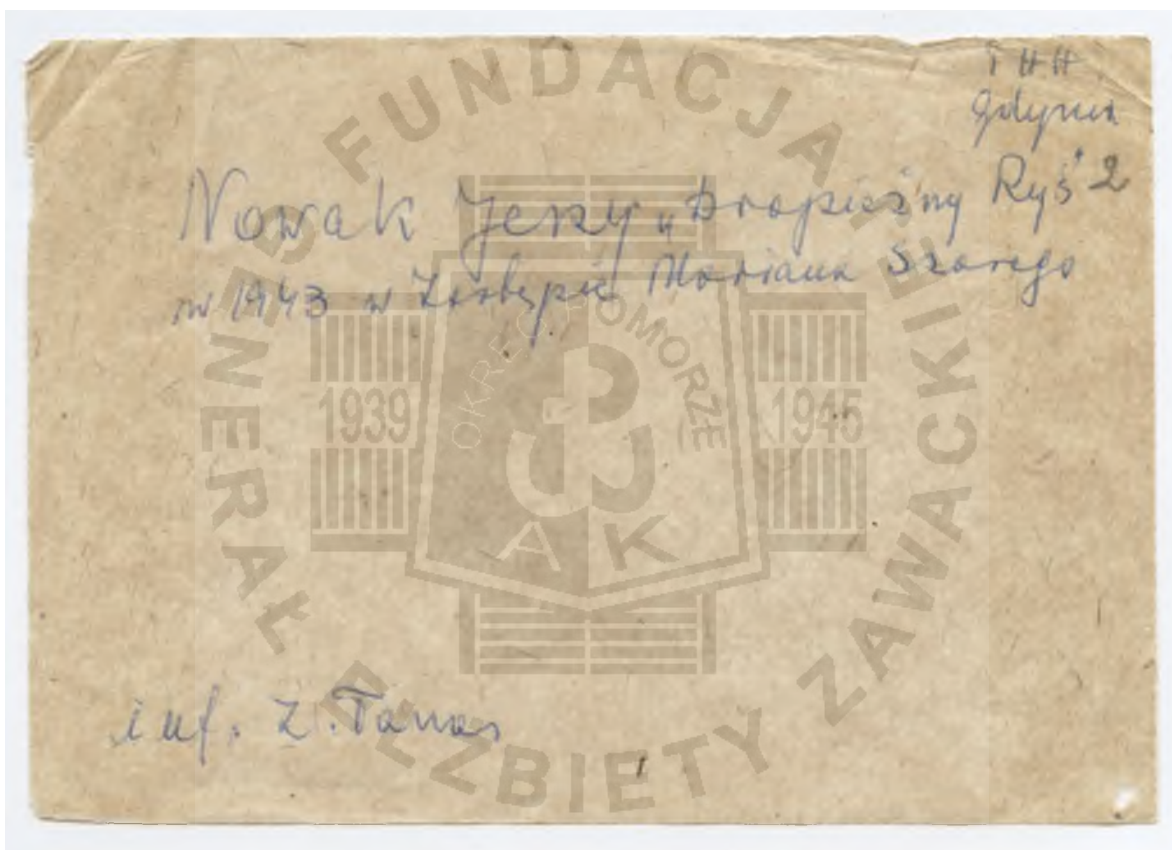 THH
Gdynia
Nowak Jerzy „Drapieżny Ryś" 2
w 1943 w Zastępie Mariana Szarego
inf. Z. Tanas
FUNDACJA
GENERAŁ ELŻBIETY ZAWACKIEJ
OKRĘG POMORZE
1939 1945
AK